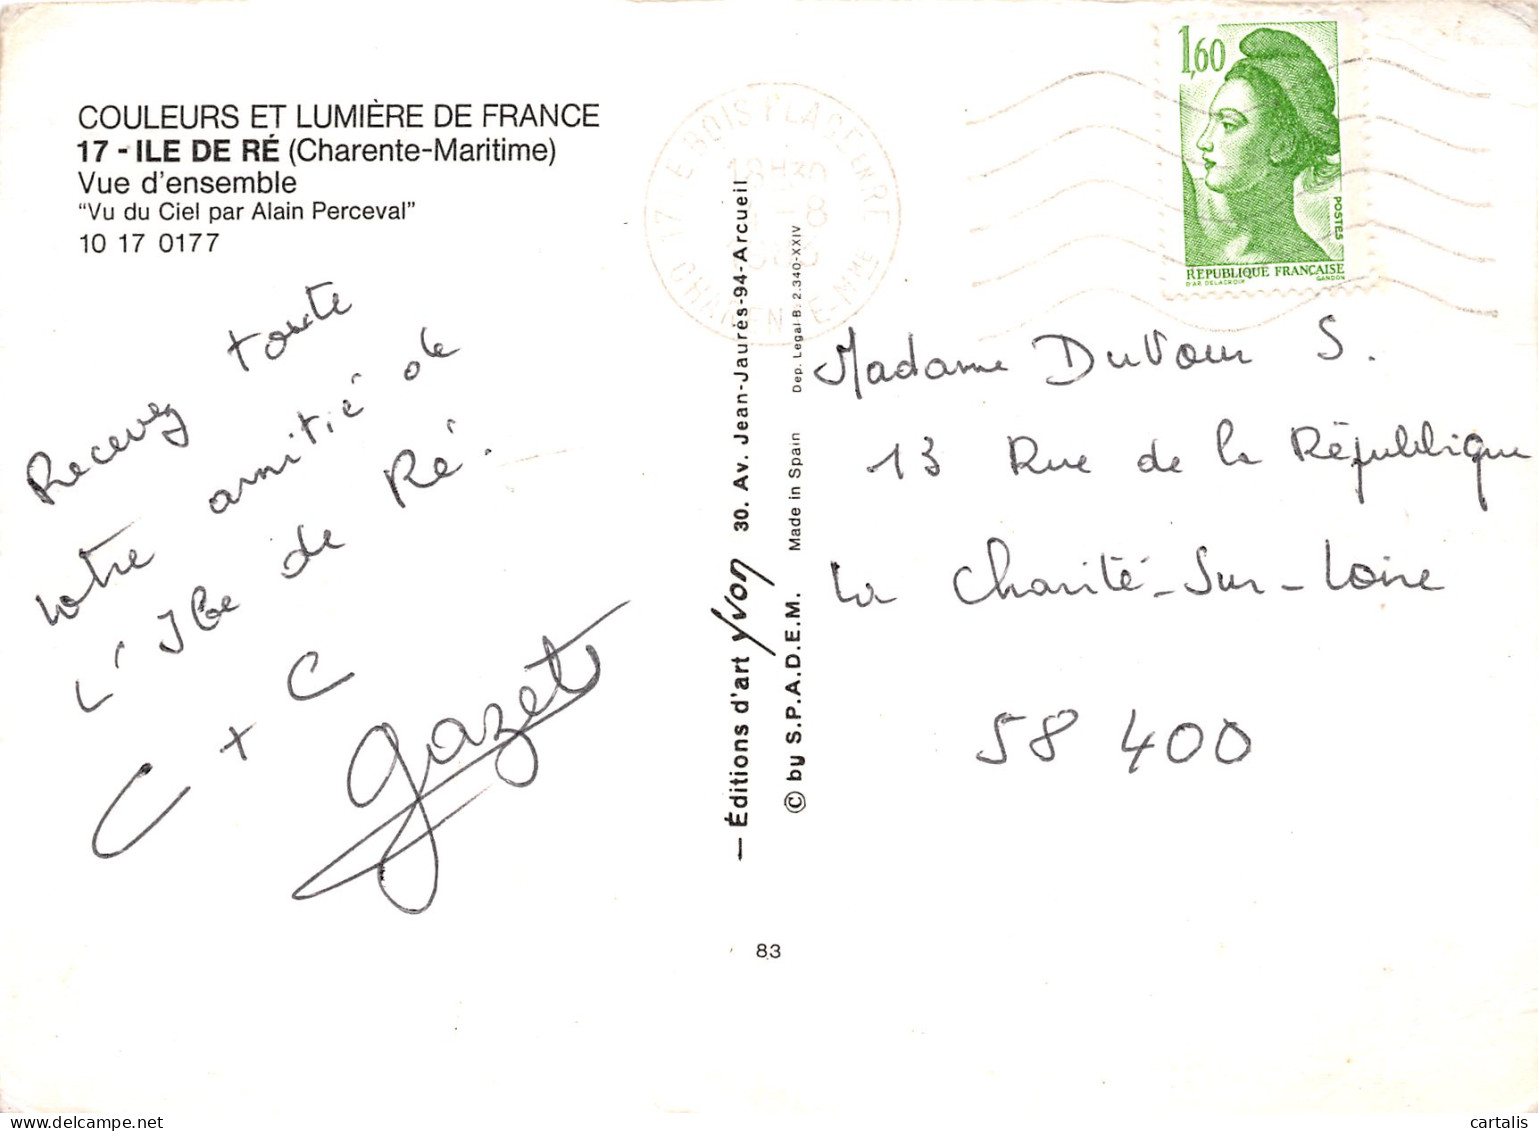 COULEURS ET LUMIÈRE DE FRANCE
17 - ILE DE RÉ (Charente-Maritime)
Vue d'ensemble
"Vu du Ciel par Alain Perceval"
10 17 0177
Recevez toute
votre amitié de
L'Ile de Ré.
C + C
gazet
— Éditions d'art Yvon 30. Av. Jean-Jaurès-94-Arcueil
© by S.P.A.D.E.M. Made in Spain Dep. Legal B. 2.340-XXIV
83
17 LE BOIS PLAGE EN RE
18H30
-8
CHARENTE-Mme
1,60
POSTES
RÉPUBLIQUE FRANÇAISE
D'AP. DELACROIX GANDON
Madame Duvour S.
13 Rue de la République
La Charité-Sur-Loire
58 400
cartalis